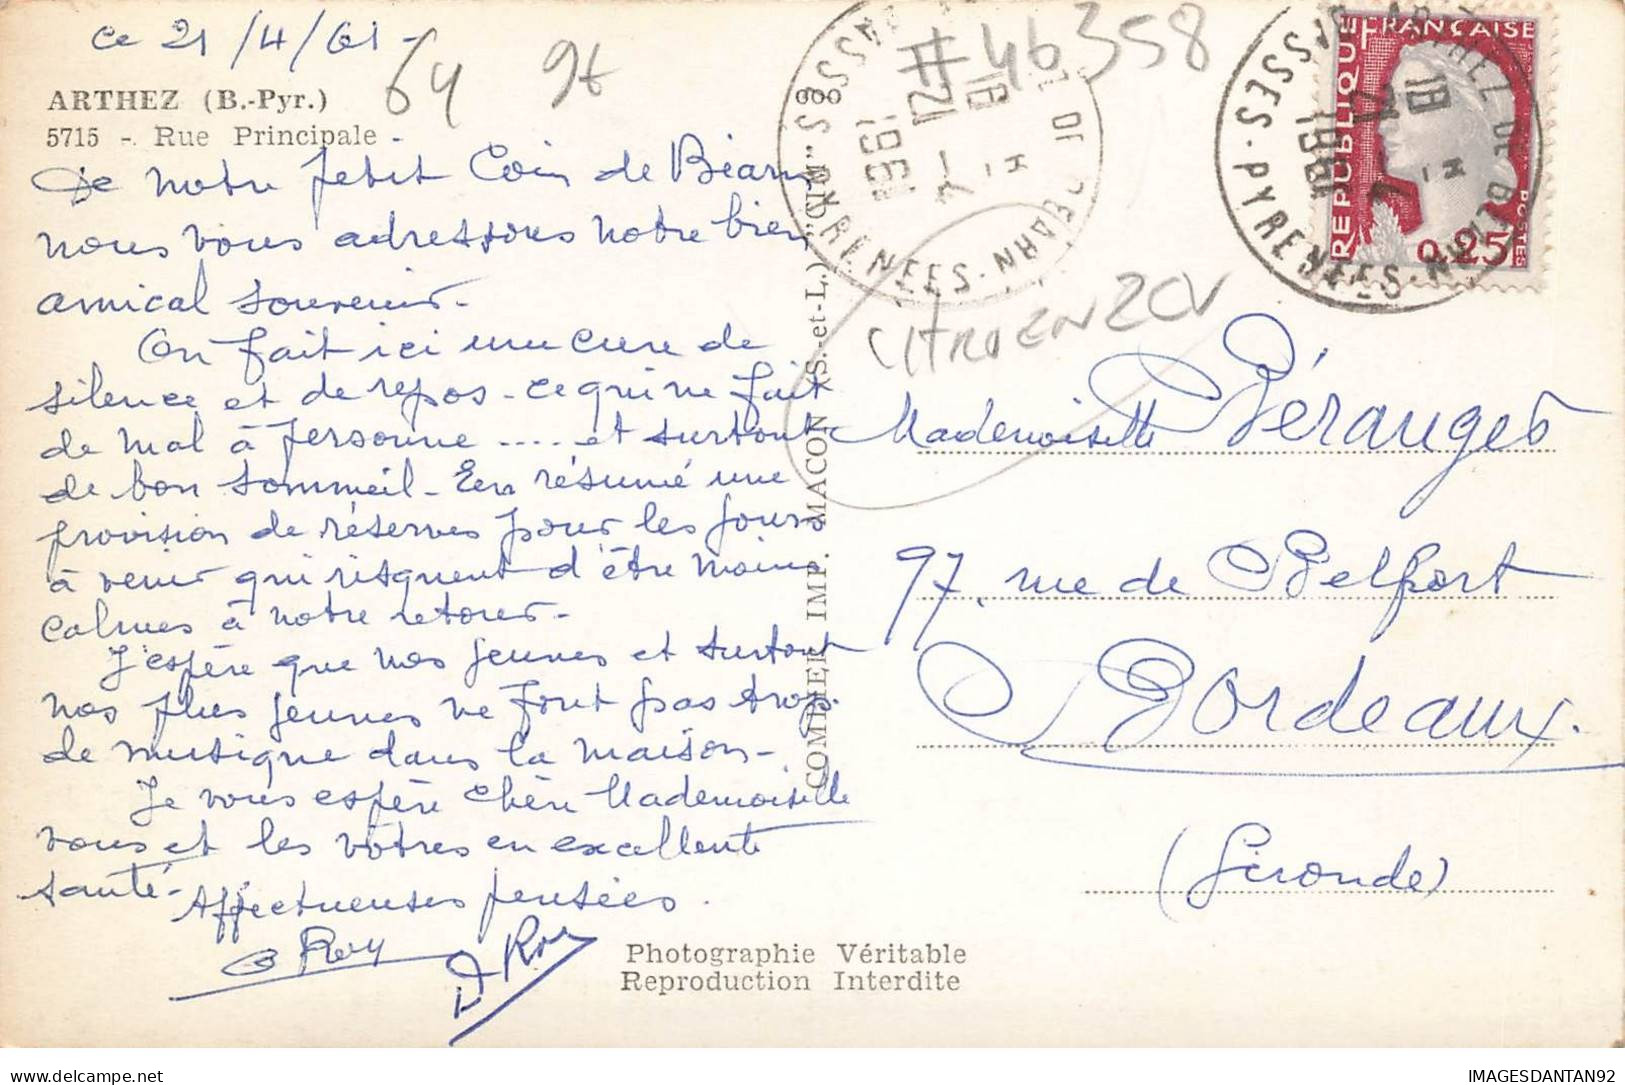 ce 21/4/61 -
64 9t
ARTHEZ (B.-Pyr.)
5715 - Rue Principale
De notre petit Coin de Béarn
nous vous adressons notre bien
amical souvenir -
On fait ici une cure de
silence et de repos - ce qui ne fait
de mal à personne ..... et surtout
de bon sommeil - En résumé une
provision de réserves pour les jours
à venir qui risquent d'être moins
calmes à notre retour -
J'espère que nos jeunes et surtout
nos plus jeunes ne font pas trop
de musique dans la maison -
Je vous espère chère Mademoiselle
vous et les vôtres en excellente
santé -
Affectueuses pensées.
B Roy D Roy
Photographie Véritable
Reproduction Interdite
COMBIER IMP. MACON (S.-et-L.) "CIM"
#46358
CITROEN 2CV
18 H
21 - 4
1961
BSSES-PYRENEES
RÉPUBLIQUE FRANÇAISE
POSTES
0,25
ARTHEZ DE BEARN
18 H
21 - 4
1961
BSSES-PYRENEES
Mademoiselle Béranger
97, rue de Belfort
Bordeaux.
(Gironde)
IMAGESDANTAN92